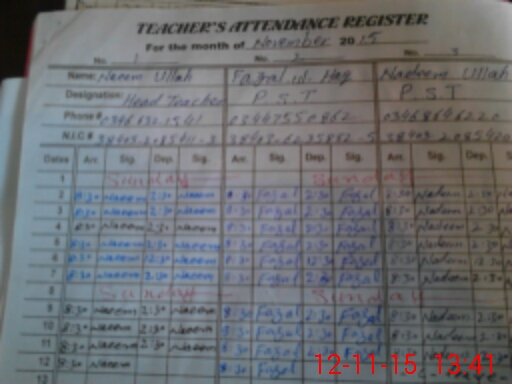 TEACHER'S ATTENDANCE REGISTER
For the month of November 2015
No. 1 No. 2 No. 3
Name: Naeem Ullah Fazal ul Haq Nadeem Ullah
Designation: Head Teacher P.S.T P.S.T
Phone #
N.I.C #
Dates Arr. Sig. Dep. Sig. Arr. Sig. Dep. Sig. Arr. Sig. Dep.
1 Sunday Sunday
2 8:30 Naeem 2:30 Naeem 8:30 Fazal 2:30 Fazal 8:30 Nadeem 2:30
3 8:30 Naeem 2:30 Naeem 8:30 Fazal 2:30 Fazal 8:30 Nadeem 2:30
4 8:30 Naeem 2:30 Naeem 8:30 Fazal 2:30 Fazal 8:30 Nadeem 2:30
5 8:30 Naeem 2:30 Naeem 8:30 Fazal 2:30 Fazal 8:30 Nadeem 2:30
6 8:30 Naeem 12:30 Naeem 8:30 Fazal 12:30 Fazal 8:30 Nadeem 12:30
7 8:30 Naeem 2:30 Naeem 8:30 Fazal 2:30 Fazal 8:30 Nadeem 2:30
8 Sunday Sunday
9 8:30 Naeem 2:30 Naeem 8:30 Fazal 2:30 Fazal 8:30 Nadeem 2:30
10 8:30 Naeem 2:30 Naeem 8:30 Fazal 2:30 Fazal 8:30 Nadeem 2:30
11 8:30 Naeem 2:30 Naeem 8:30 Fazal 2:30 Fazal 8:30 Nadeem
12 8:30 Naeem 8:30 Fazal
12-11-15 13:41